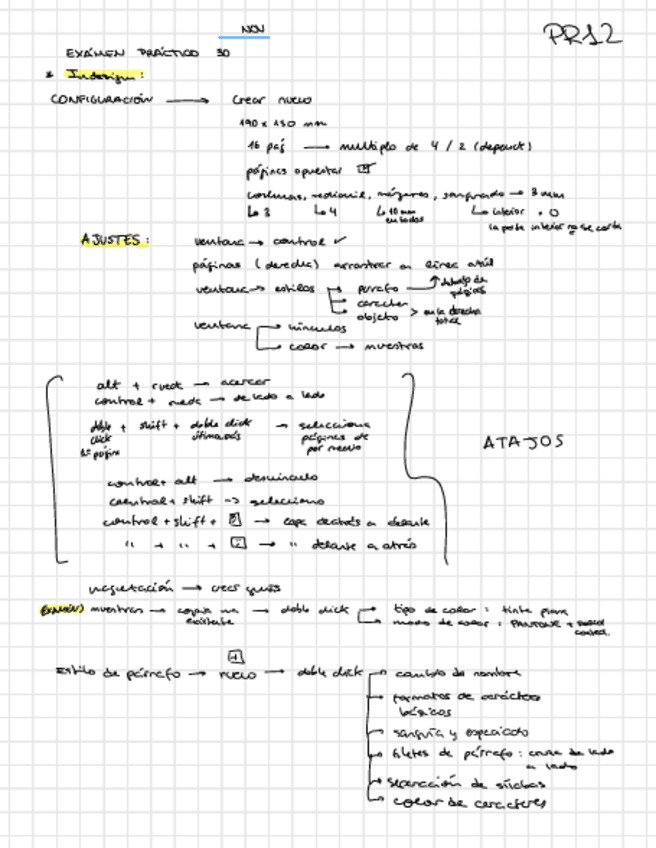 NOV
PR12
EXÁMEN PRÁCTICO 30
* Indesign:
CONFIGURACIÓN → crear nuevo
190 x 150 mm
16 pág → multiplo de 4 / 2 (depend)
páginas opuestas
columnas, medianil, márgenes, sangrado → 3 mm
↳ 3 ↳ 4 ↳ 10 mm en todos ↳ interior · 0
la parte interior no se corta
AJUSTES: ventana → control ✓
páginas (derecha) arrastrar a línea azul
ventana → estilos → párrafo → debajo de páginas
caracter
objeto > en la derecha total
ventana → vínculos
color → muestras
alt + rueda → acercar
control + rueda → de lado a lado
doble click 1ª página + shift + doble click última pág → selecciona páginas de por medio
ATAJOS
control + alt → desvinculo
control + shift → selecciono
control + shift + → capa detrás a delante
" + " + → " delante a atrás
maquetación → crear guías
muestras → copia una existente → doble click → tipo de color: tinta plana
modo de color: PANTONE +
Estilo de párrafo → nuevo → doble click → cambio de nombre
+
formatos de carácter básicos
sangría y espaciado
filetes de párrafo: de lado a lado
separación de sílabas
color de caracteres